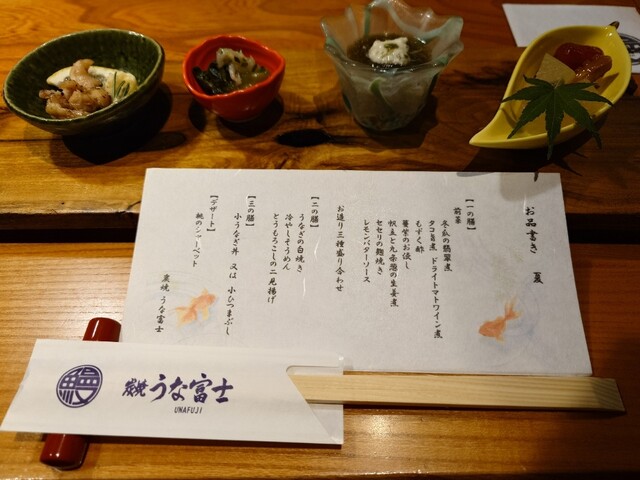 お品書き 夏
【一の膳】
前菜
冬瓜の翡翠煮
タコ旨煮 ドライトマトワイン煮
もずく酢
蓴菜のお浸し
帆立と九条葱の生姜煮
セセリの麹焼き
レモンバターソース
お造り三種盛り合わせ
【二の膳】
うなぎの白焼き
冷やしそうめん
とうもろこしの二見揚げ
【三の膳】
小うなぎ丼 又は 小ひつまぶし
【デザート】
桃のシャーベット
炭焼 うな富士
鰻 炭焼 うな富士
UNAFUJI